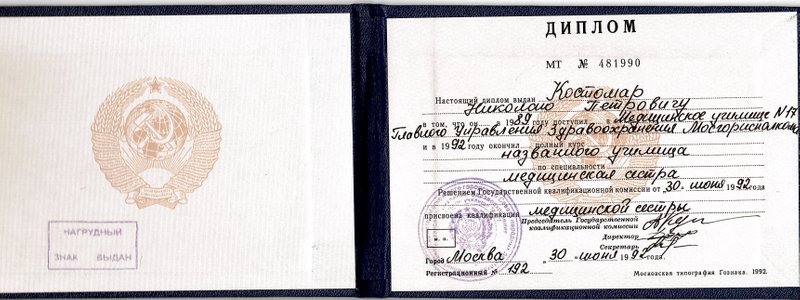 НАГРУДНЫЙ
ЗНАК ВЫДАН
ДИПЛОМ
МТ № 481990
Настоящий диплом выдан Костомар
Николаю Петровичу
в том, что он в 1989 году поступил в Медицинское училище N 17
Главного Управления Здравоохранения Мосгорисполкома
и в 1992 году окончил полный курс
названного училища
по специальности
медицинская сестра
Решением Государственной квалификационной комиссии от 30 июня 1992 года
присвоена квалификация медицинской сестры
Председатель Государственной
квалификационной комиссии
Директор
Секретарь
м. п.
Город Москва 30 июня 1992 года
Регистрационный № 192
Московская типография Гознака. 1992.